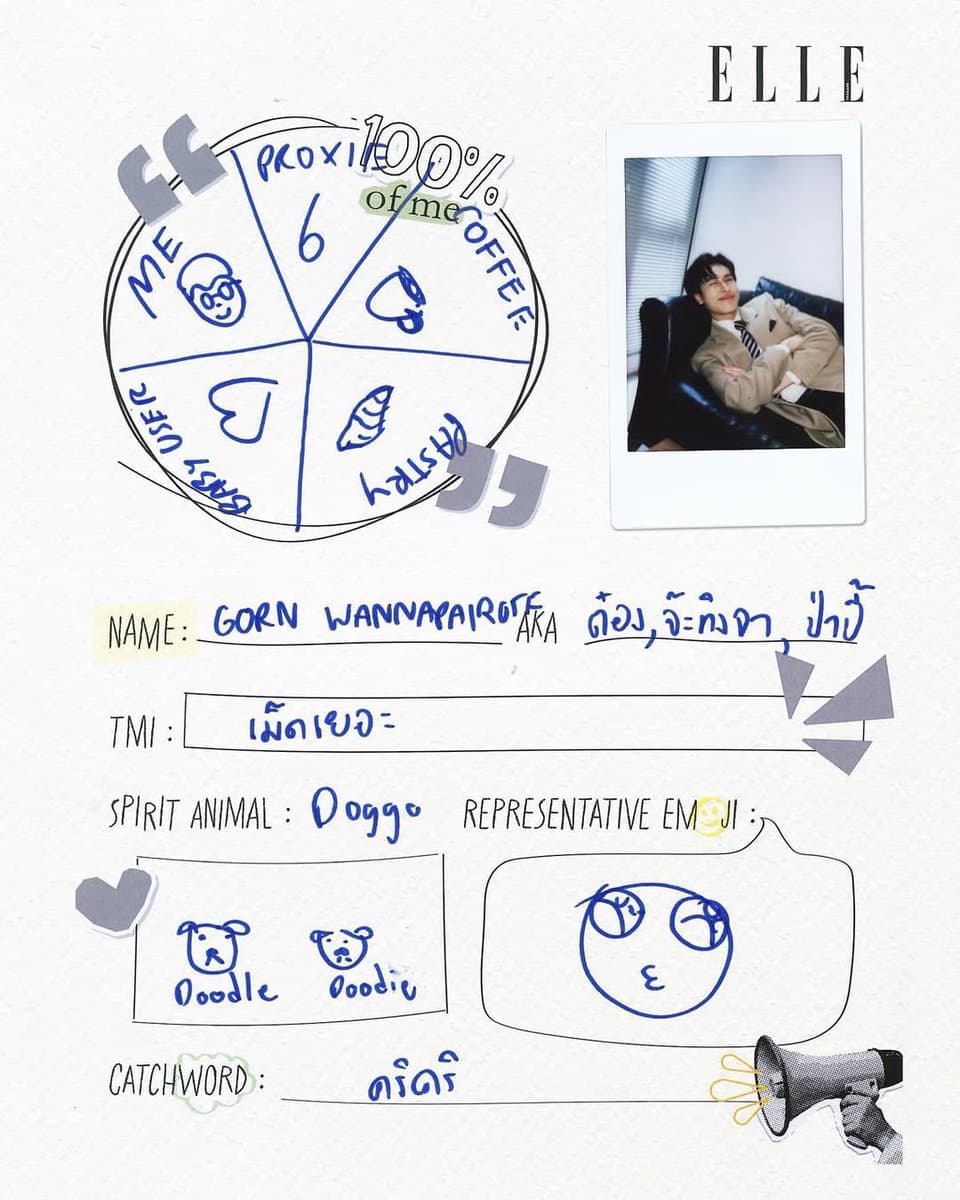 ELLE
100%
of me
PROXIE
6
COFFEE
ME
BABY USER
PASTRY
NAME: GORN WANNAPAIROTE AKA ต๋อง, จ๊ะทิงจา, ป่าปี๊
TMI: เม็ดเยอะ
SPIRIT ANIMAL: Doggo
REPRESENTATIVE EMOJI:
Doodle Doodie
CATCHWORD: คริคริ